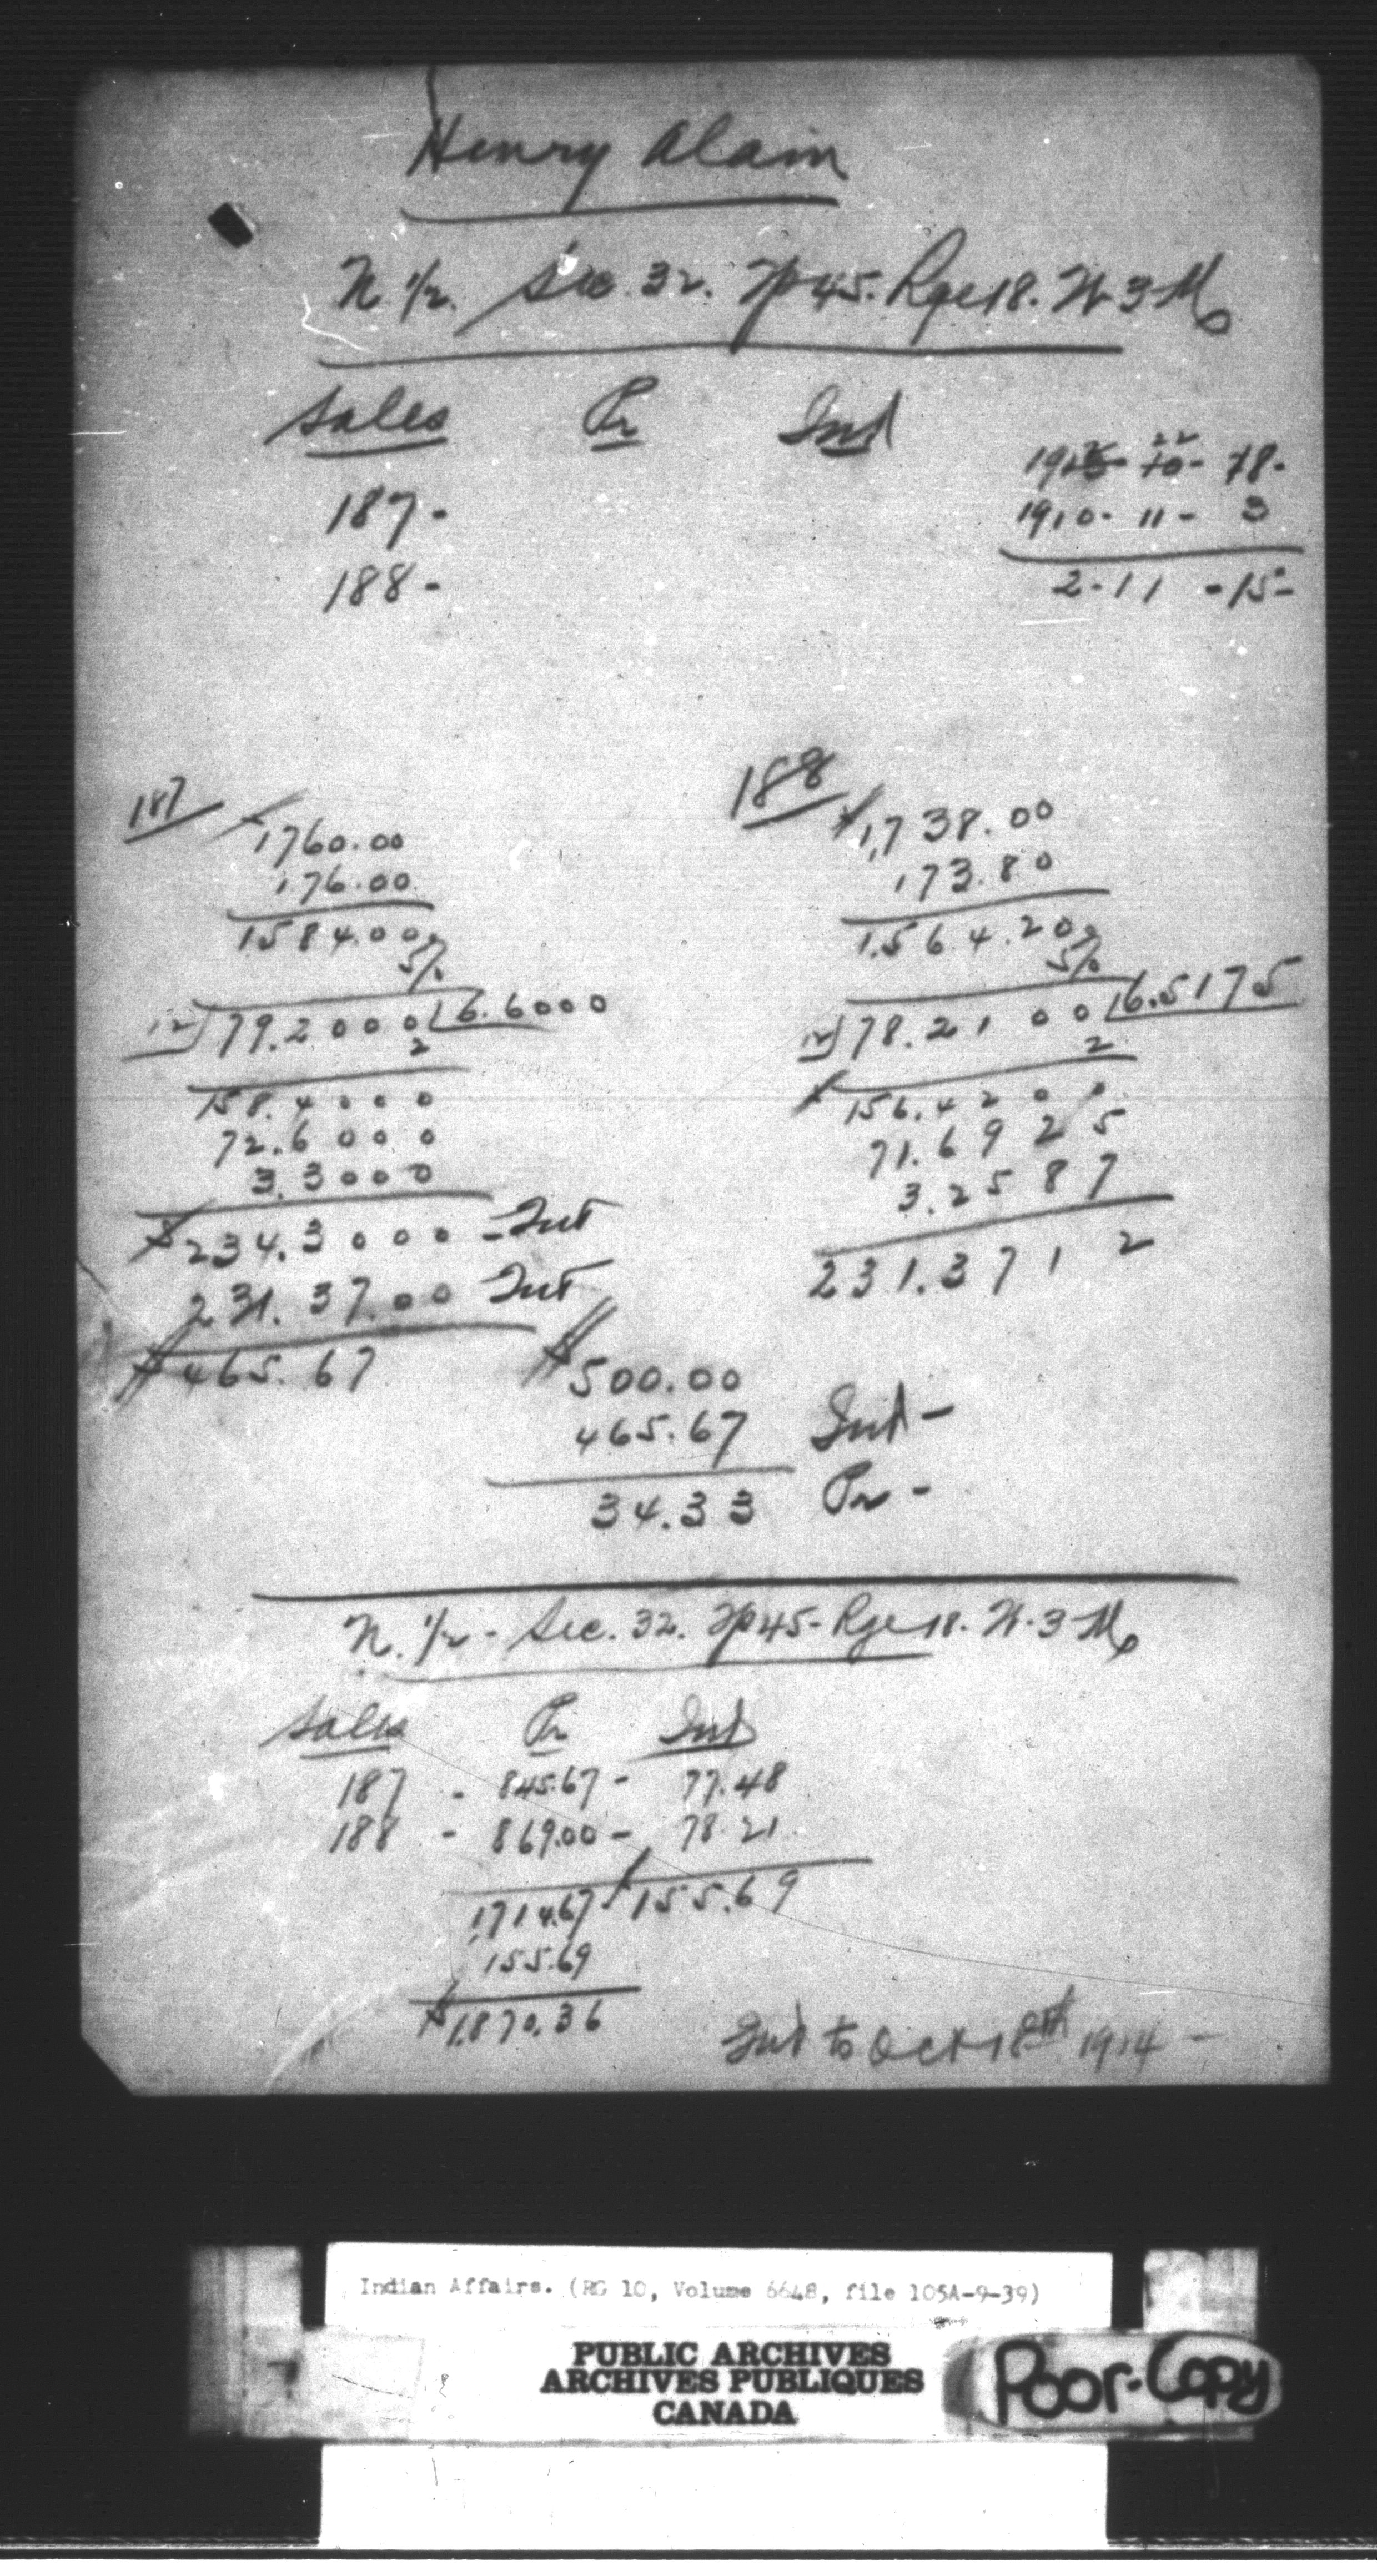 Henry Alain
N. 1/2. Sec. 32. Tp 45. Rge 18. W. 3 M.
Sales Pr Int
22
10 - 18.
187 -
1910 - 11 - 3
188 -
2 - 11 - 15 -
187
$1760.00
176.00
1584.00
5%
12) 79.2000 | 6.6000
2
158.4000
72.6000
3.3000
$234.3000 - Int
231.37.00 Int
$465.67
188
$1,738.00
173.80
1,564.20
5%
12) 78.2100 | 6.5175
2
$156.4200
71.6925
3.2587
231.3712
$500.00
465.67 Int -
34.33 Pr -
N. 1/2 - Sec. 32. Tp 45 - Rge 18. W. 3 M.
Sales Pr Int
187 - 845.67 - 77.48
188 - 869.00 - 78.21
1,714.67 $155.69
155.69
$1,870.36
Int to Oct 18th 1914 -
Indian Affairs. (RG 10, Volume 6648, file 105A-9-39)
PUBLIC ARCHIVES
ARCHIVES PUBLIQUES
CANADA
Poor-Copy